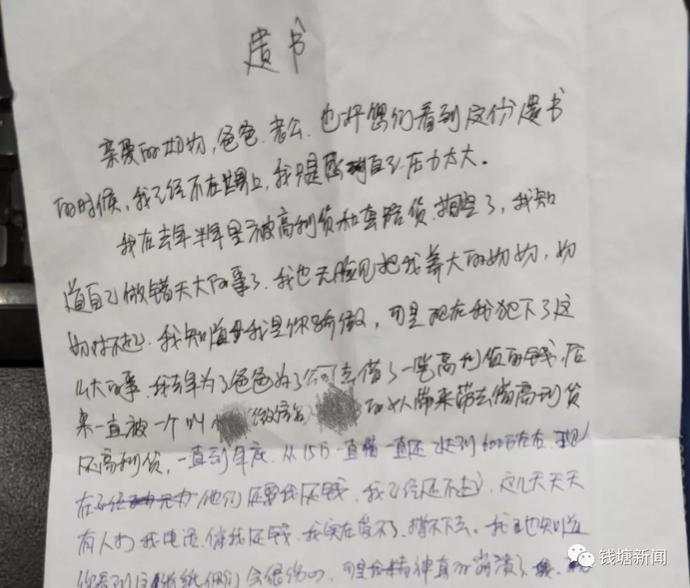 遗书
亲爱的妈妈,爸爸.老公.也许您们看到这份遗书
的时候,我已经不在世上,我只是感到自己压力太大。
我在去年半年里被高利贷和套路贷.撞了,我知
道自己做错天大的事了.我也无脸见把我养大的妈妈,妈
妈对不起.我知道我是你骄傲,可是现在我犯下了这
么大的事.我去年为了爸爸为了公司去借了一笔高利贷的钱,后
来一直被一个叫 (微信名 的人带来带去借高利贷
还高利贷,一直到年底.从15万一直借一直还 到600万左右.
在 他们还要我还钱.我已经还不起了,这几天天天
有人打我电话.催我还钱.我实在受不了.撑不下去.我也知道
你看到这 会很伤心.可是 精神真的崩溃了.
钱塘新闻